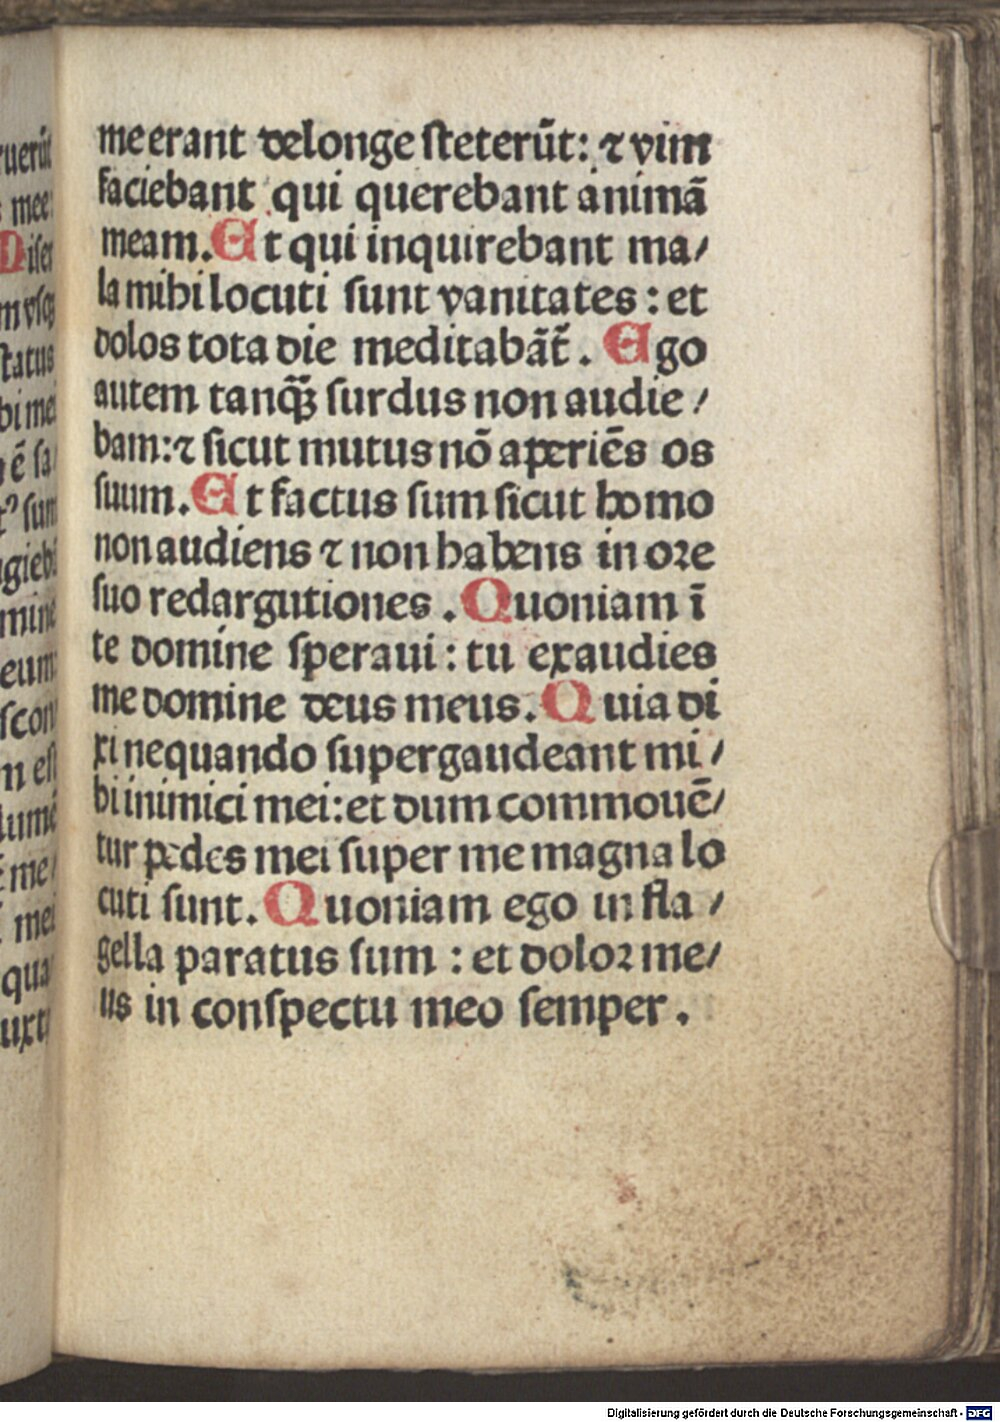 me erant de longe steterūt: ⁊ vim
faciebant qui querebant animā
meam. Et qui inquirebant ma/
la mihi locuti sunt vanitates: et
dolos tota die meditabāt̄. Ego
autem tanq̄ꝫ surdus non audie/
bam: ⁊ sicut mutus nō aperiēs os
suum. Et factus sum sicut homo
non audiens ⁊ non habens in ore
suo redargutiones. Quoniam ī
te domine speraui: tu exaudies
me domine deus meus. Quia di
xi nequando supergaudeant mi/
hi inimici mei: et dum commouē/
tur pedes mei super me magna lo
cuti sunt. Quoniam ego in fla/
gella paratus sum: et dolor me/
us in conspectu meo semper.
Digitalisierung gefördert durch die Deutsche Forschungsgemeinschaft - DFG